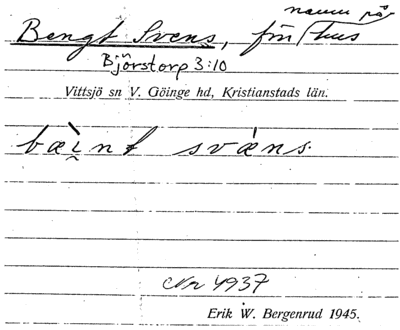 namn på
Bengt Svens, fin hus
Björstorp 3:10
Vittsjö sn V. Göinge hd, Kristianstads län.
bæ̀i̯nt svǽns.
Nr 4937
Erik W. Bergenrud 1945.